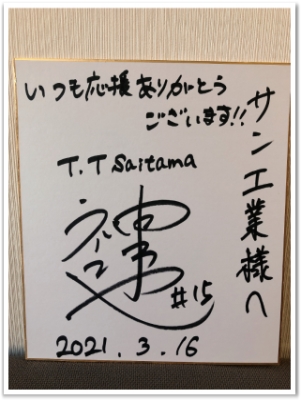 サン工業様へ
いつも応援ありがとう
ございます!!
T.T Saitama
#15
2021.3.16